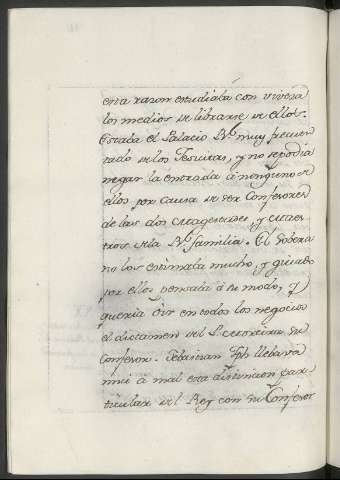 esta razon estudiaba con viveza
los medios de librarse de ellos.
Estaba el Palacio Rl. muy frecuen
tado de los Jesuitas, y no se podia
negar la entrada à ninguno de
ellos por causa de ser Confesores
de las dos Magestades, y Maes
tros de la Rl. familia. El Sobera
no los estimaba mucho, y guiado
por ellos pensaba à su modo, y
queria oir en todos los negocios
el dictamen del P. Moreira su
Confesor. Sebastian Jph llebava
mui à mal esta distincion par
ticular del Rey con su Confesor